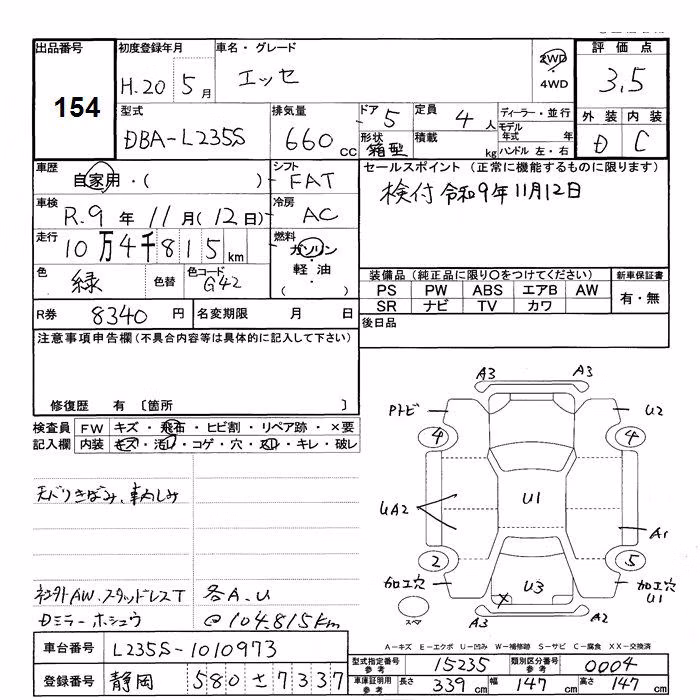 出品番号 初度登録年月 車名・グレード 評価点
154 H.20 5月 エッセ 2WD 4WD 3,5
型式 排気量 ドア 定員 ディーラー・並行 外装 内装
DBA-L235S 660cc 5 4人 モデル年式 年 D C
形状 箱型 積載 kg ハンドル 左・右
車歴 シフト セールスポイント (正常に機能するものに限ります)
自家用・( ) FAT 検付 令和9年11月12日
車検 冷房
R.9年11月(12日) AC
走行 燃料
10万4千815km ガソリン
色 色替 色コード 軽油
緑 G42 ( )
装備品 (純正品に限り〇をつけてください) 新車保証書
PS PW ABS エアB AW 有・無
SR ナビ TV カワ
R券 8340円 名変期限 月 日 後日品
注意事項申告欄(不具合内容等は具体的に記入して下さい)
修復歴 有 〔箇所 〕
検査員 FW キズ・飛石・ヒビ割・リペア跡・×要
記入欄 内装 キズ・汚レ・コゲ・穴・スレ・キレ・破レ
天バリきばみ、車内しみ
ネジ外AW、スタッドレスT 各A、U
Dミラーホシュウ @104,815km
A3 A3
Pトビ U2
4 4
UA2 U1 A1
2 5
加工穴 U3 加工穴 U1
スペア A3 A2
A-キズ E-エクボ U-凹み W-補修跡 S-サビ C-腐食 XX-交換済
車台番号 L235S-1010973
型式指定番号 参考 15235 類別区分番号 参考 0004
登録番号 静岡 580 さ 7337
車庫証明用 参考 長さ 339cm 幅 147cm 高さ 147cm